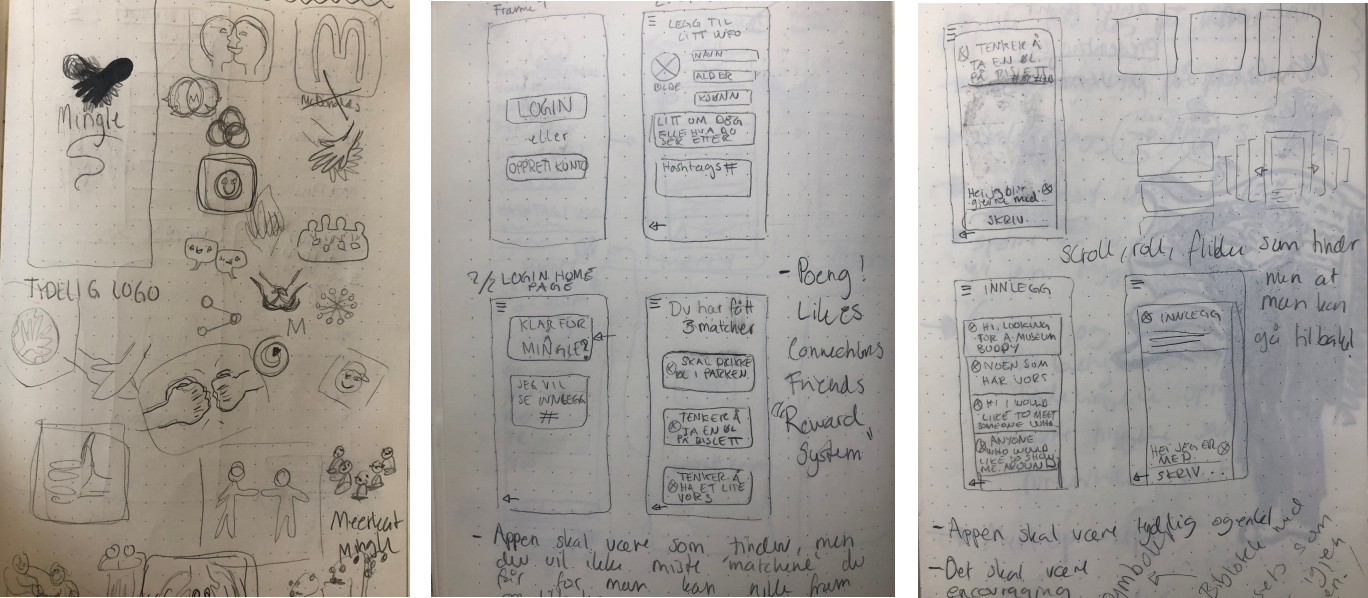 Mingle
McDonalds
M
TYDELIG LOGO
M
Meerkat
Mingle
Frame 1
LOGIN
eller
OPPRETT KONTO
LEGG TIL
LITT INFO
NAVN
ALDER
KJØNN
BILDE
LITT OM DEG
ELLE HVA DU
SER ETTER
Hashtags #
2/2 LOGIN HOME
PAGE
KLAR FOR
Å
MINGLE?
JEG VIL
SE INNLEGG
#
Du har fått
3 matcher
SKAL DRIKKE
ØL I PARKEN
TENKER Å
TA EN ØL
PÅ BISLETT
TENKER Å
HA ET LITE
VORS
- Poeng!
Likes
Connections
Friends
"Reward
System"
- Appen skal være som tinder, men
du vil ikke miste "matchene" du
får for man kan rulle fram
TENKER Å
TA EN ØL
PÅ BISLETT
Hei jeg blir
gjerne med
SKRIV...
scroll, roll, flidu som tinder
men at
man kan
gå tilbake!
INNLEGG
HI, LOOKING
FOR A MUSEUM
BUDDY
NOEN SOM
HAR VORS
HI I WOULD
LIKE TO MEET
SOMEONE WHO
ANYONE
WHO WOULD
LIKE TO SHOW
ME AROUND
INNLEGG
HEI JEG ER
MED
SKRIV...
- Appen skal være tydelig og enkel
- Det skal være
encouraging
symboler
Bibliotek med
som
igjen